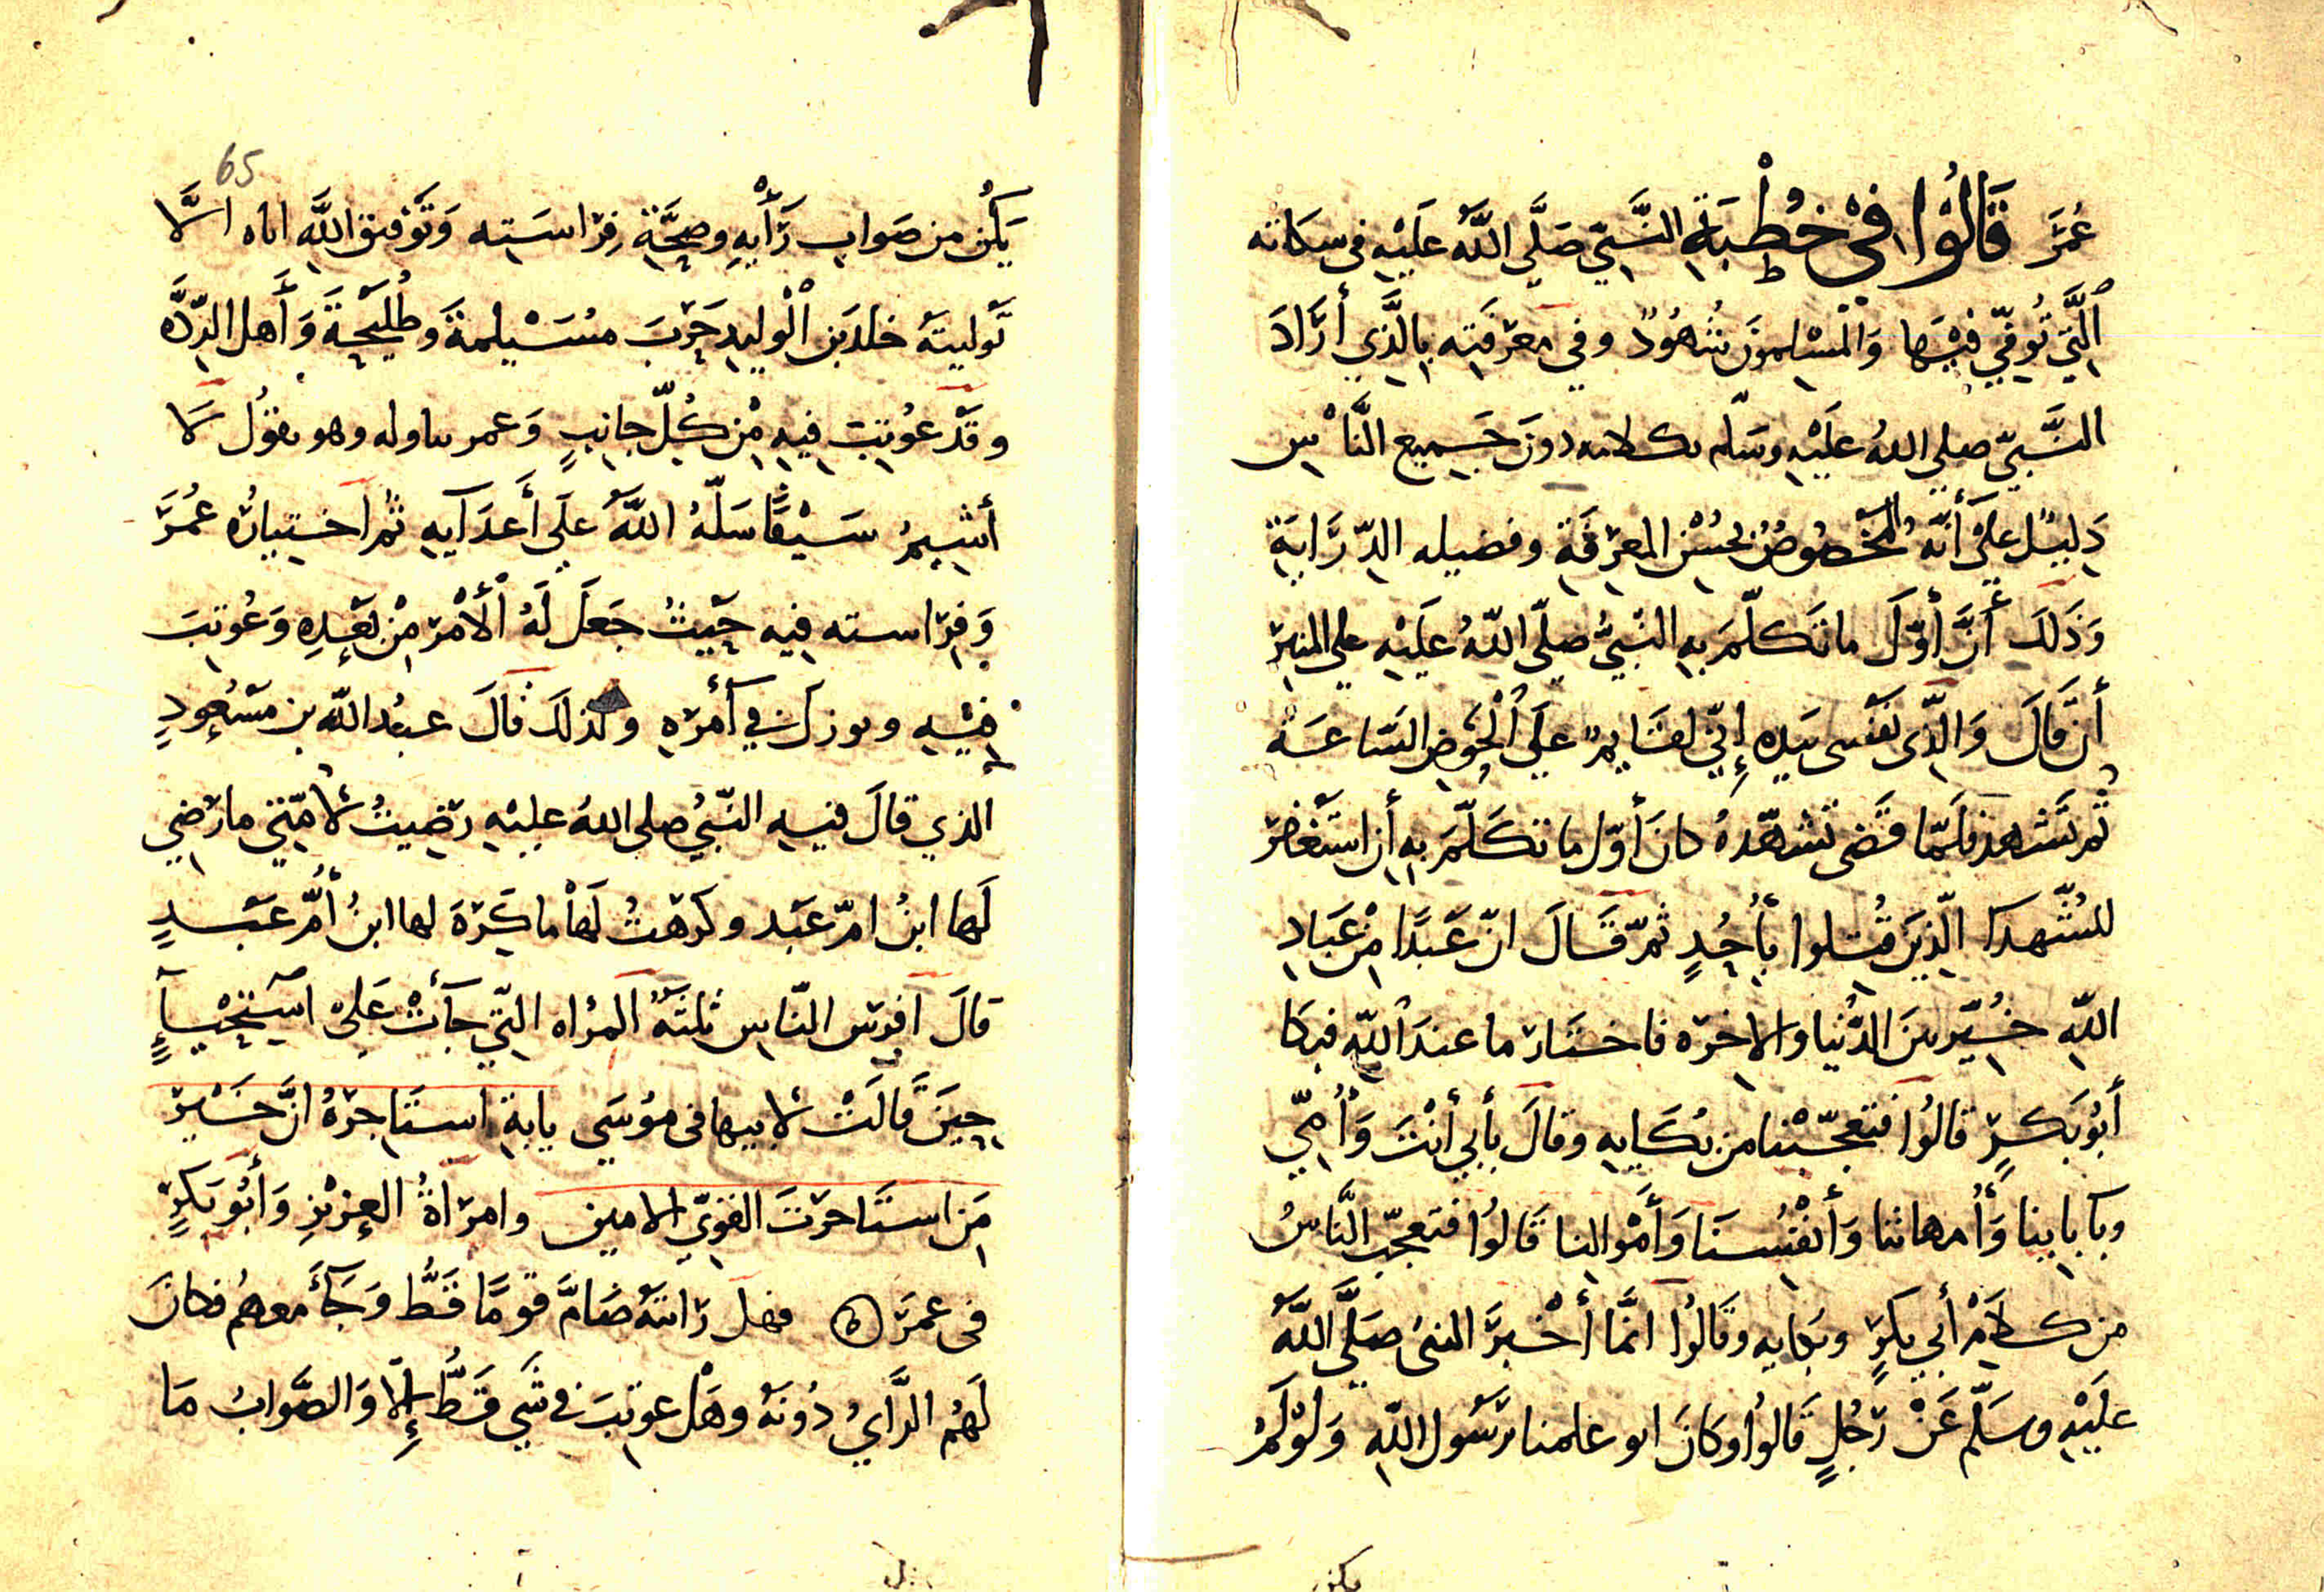 عُمَرَ قَالُوُا فِي خُطْبَةِ النَّبِيّ صَلَّى اللَّهُ عَلَيْهِ في سكاته
الَّتِي تُوفِّي فِيْهَا وَالْمُسْلِمُونَ شُهُودٌ وفي مَعْرِفَتِهِ بِالَّذِي أَرَادَ
النَّبِيّ صلى اللهُ عَلَيْهِ وسَلّم بكلامه دونَ جَمِيعِ النَّاسِ
دَلِيْلٌ عَلَى أَنَّهُ الْمخْصُوصُ بحُسْنِ المعْرِفَةِ وفضيله الدِّرَايَةِ
وَذَلَكَ أَنَّ أَوَّلَ ما تَكَلَّمَ بِهِ النَّبيُّ صلّى اللّهُ عَلَيْهِ على المنبر
أن قَالَ وَالَّذِي نَفْسى بيَدِهِ إِنِّي لقَايِمٌ عَلَى الْحَوْضِ السَّاعَةَ
ثم تَشَهد فلَمَّا قَضى تَشَهّدهُ كانَ أَوّل ما تَكَلَّمَ بِهِ أَن اسْتَغفر
للشُّهدآ الّذِينَ قُتِلوا بِأُحُدٍ ثمّ قَالَ انّ عَبْدًا مِنْ عِبَادِ
اللّهِ خُيِّرَ بينَ الدُّنْيا والاخرَه فاختَارَ ما عندَ اللّهِ فبكا
أَبُو بَكرٍ قالُوا فتعجّبْنا من بُكَايِهِ وقالَ بأبي أَنْتَ وَأُمِّي
وبآبايِنا وَأُمهاتنا وَأَنفُسنَا وَأَمْوالنا قَالوُا فتعجّب النَّاسُ
من كلامِ أَبي بكرٍ وبكايه وقَالوُا انَّمَا أَخْبَرَ النبيُ صَلَّى اللَّهُ
عَلَيْهِ وسَلّم عَنْ رَجُلٍ قَالوُا وكَانَ ابو علمنا برَسُول اللّهِ وَلَوْ لَمْ
65
يَكُن من صَوابِ رَأْيِهِ وصِحَّةِ فِرَاسَتِه وَتَوْفِيقِ اللَّهِ اياه الَّا
تَوليتهُ خلدَ بن الْوليدِ حَرْبَ مسَيْلمةَ وطُلَيْحةَ وَأَهل الرِّدَّه
وقَدْ عُوتِبَ فِيهِ مِنْ كُلّ جانِبٍ وَعمر يناوله وهو يقوُل لَا
أَشِيمُ سَيْفًا سَلَّهُ اللَّهُ على أَعدَآيهِ ثم اختيارُه عُمَرَ
وَفِرَاسته فيهِ حَيْثُ جَعَلَ لَهُ الأَمْرَ مِنْ بَعْدِهِ وَعُوتِبَ
فيْهِ ونوزل في أَمْرِهِ ولذلكَ قَالَ عبدُ اللّه بن مَسْعُودٍ
الذي قالَ فيهِ النّبيُّ صلى اللهُ عليْهِ رَضِيتُ لأُمّتي ما رَضِي
لَها ابنُ امّ عَبْد وكَرِهْتُ لَهَا ما كَرِهَ لها ابنُ أُمّ عَبْدٍ
قالَ افرس النّاس ثلثَهٌ المرْاه التي جَآءَتْ عَلى استِحْيآءٍ
حِينَ قَالَتْ لأبيها في موُسَي يابةِ استَاجِرْهُ انَّ خَيْرَ
مَن استَاجرْتَ القوِيّ الامين وامرَاةُ العِزيْزِ وَأَبُو بَكرٍ
في عمَرَ ه فهل رَايتَهُ ضَامَّ قومًا قَطُّ وَجَآءَ معهُم فكَانَ
لَهُم الرَّأيُ دُونَهُ وهَلْ عوتِبَ في شَيٍ قَطُّ إِلّا وَالصَّوابُ مَا